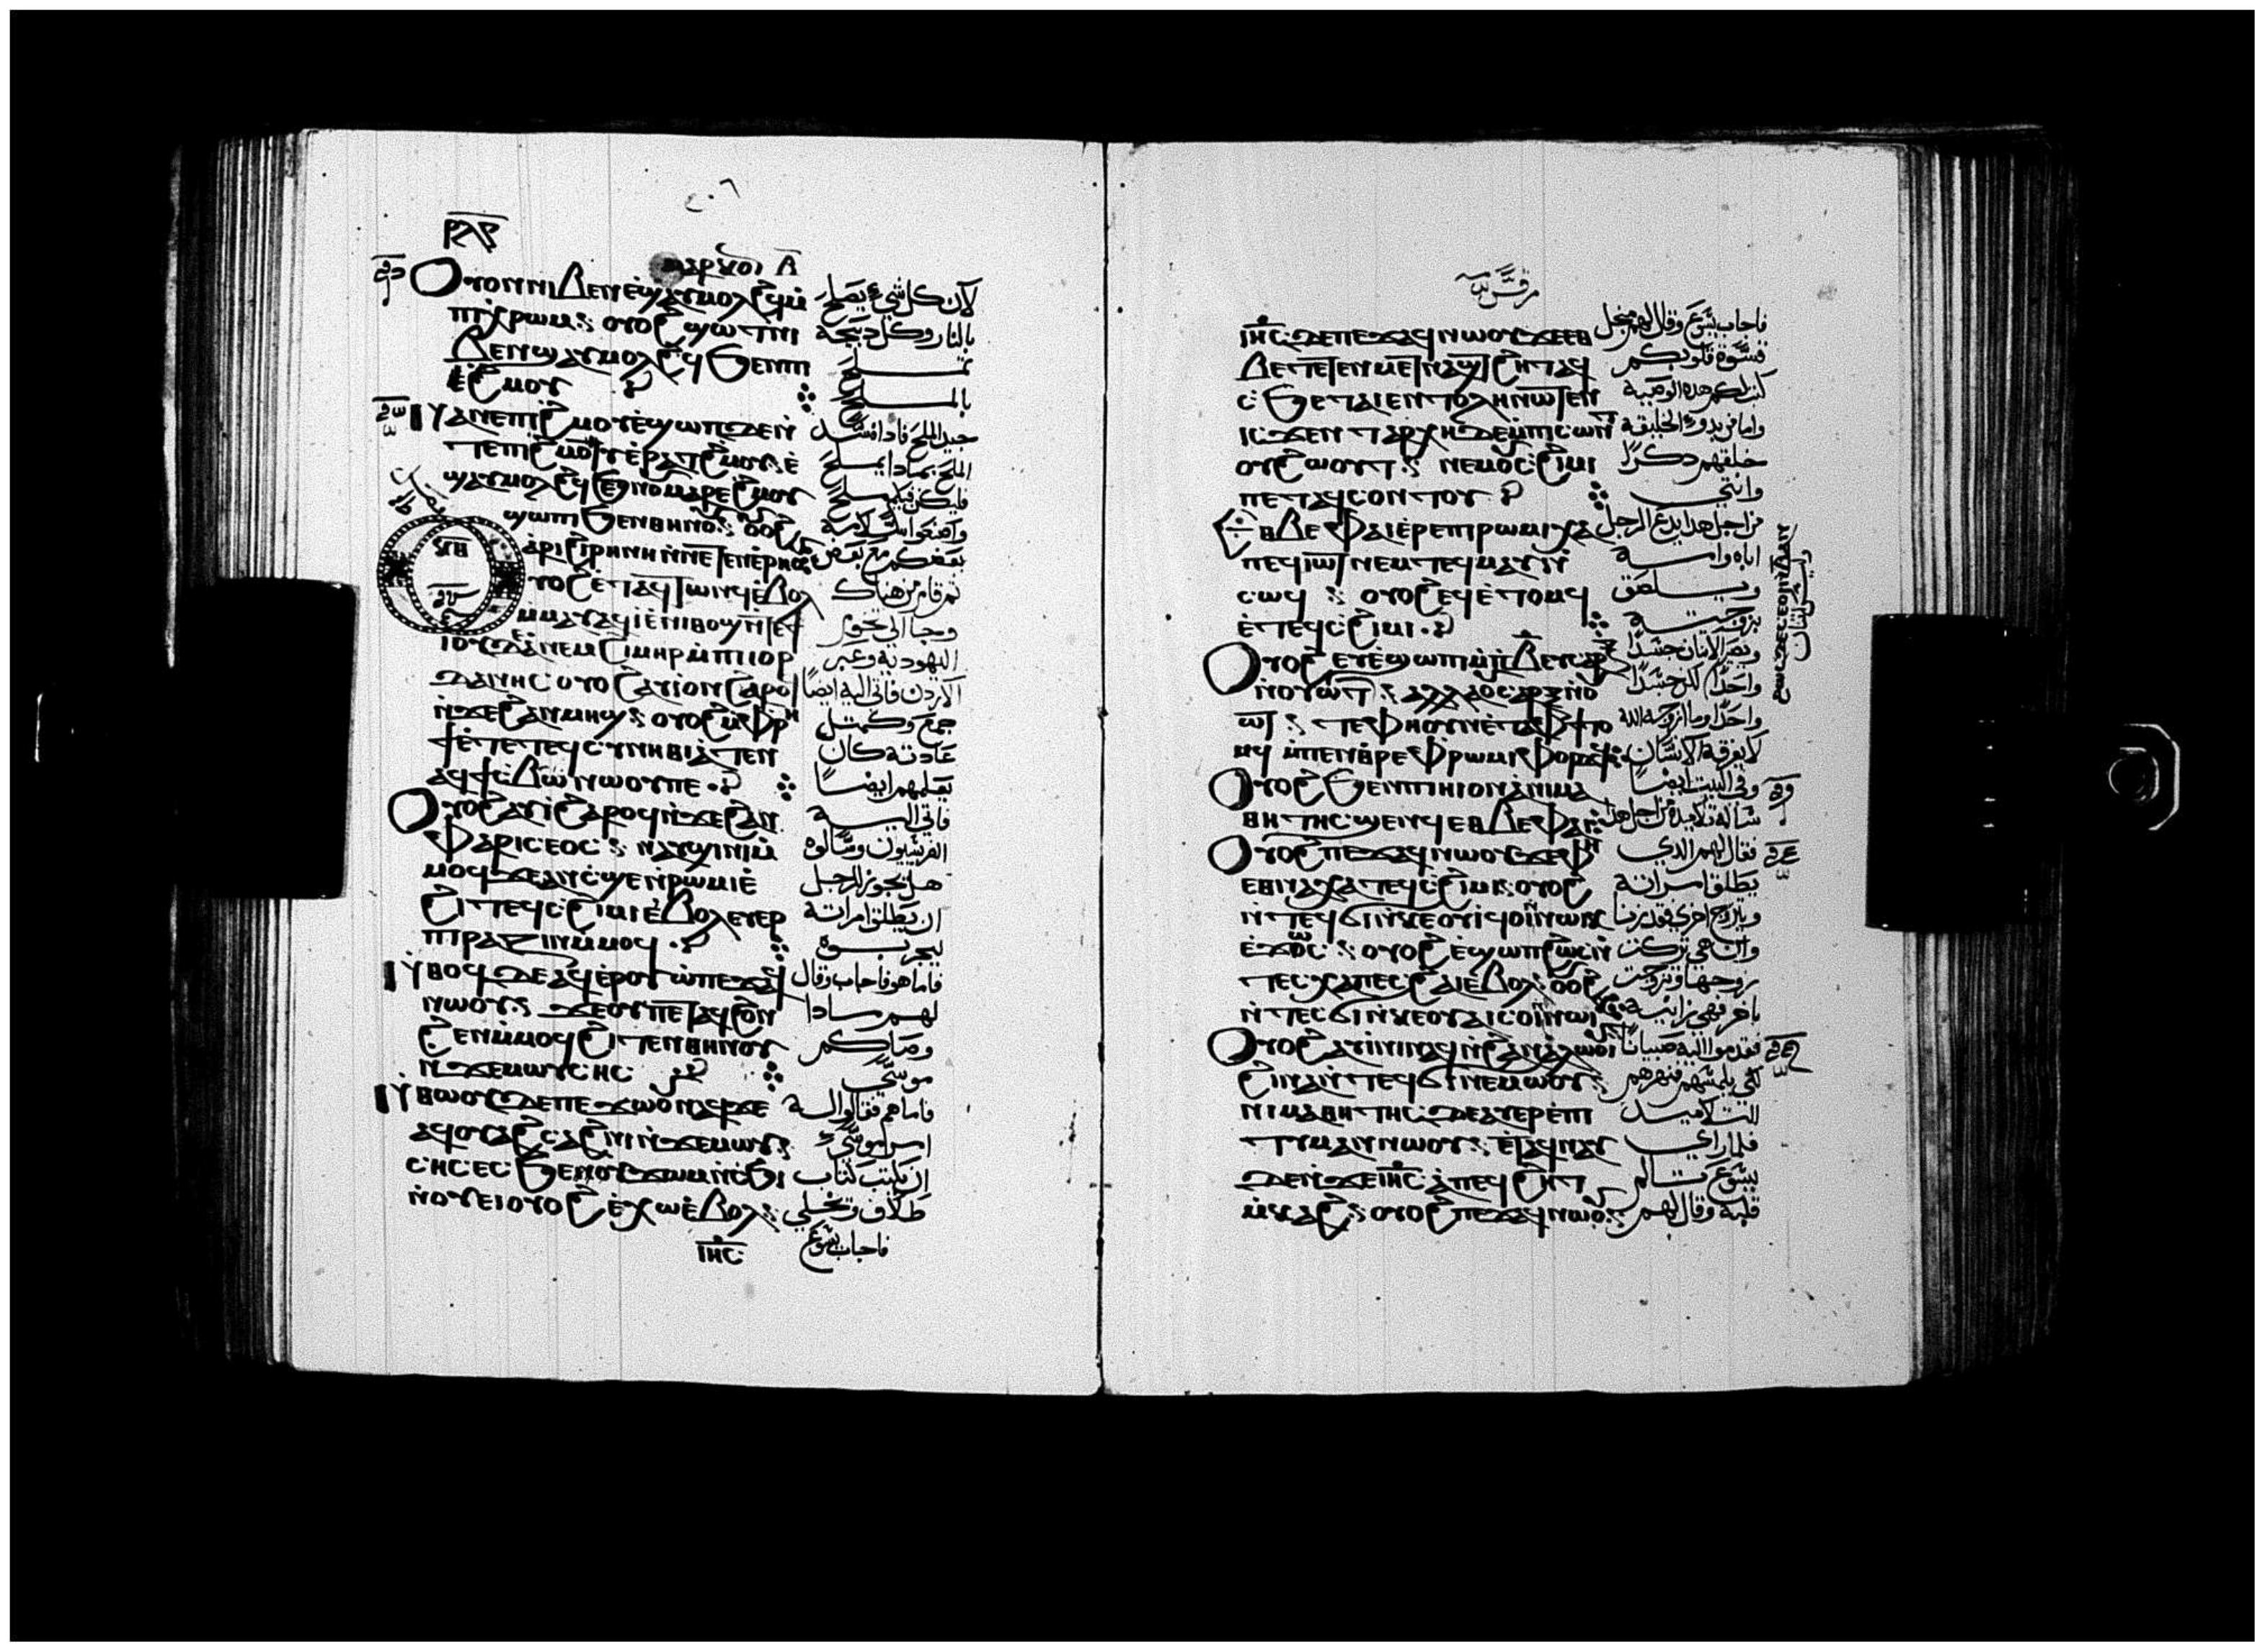 ⲣⲗⲋ
ⲙⲁⲣⲕⲟⲛ ⲁ̅
ⲟⲩⲟⲛ ⲛⲓⲃⲉⲛ ⲉⲩϣⲁⲩⲙⲟⲗϩϥ ⲙ̀
ⲡⲓⲭⲣⲱⲙ: ⲟⲩⲟϩ ϣⲱⲧ ⲛⲓ
ⲃⲉⲛ ϣⲁⲩⲙⲟⲗϩϥ ϧⲉⲛ ⲡⲓ
ϩⲙⲟⲩ
ⲛⲁⲛⲉ ⲡⲓϩⲙⲟⲩ ⲉ̀ϣⲱⲡ ⲇⲉ ⲛ̀
ⲧⲉ ⲡⲓϩⲙⲟⲩ ⲉⲣⲁⲧϩⲙⲟⲩ
ϣⲁⲩⲙⲟⲗϩϥ ϧⲉⲛ ⲟⲩ ⲙⲁⲣⲉ ϩⲙⲟⲩ
ϣⲱⲡⲓ ϧⲉⲛ ⲑⲏⲛⲟⲩ: ⲟⲩⲟϩ
ⲁⲣⲓϩⲓⲣⲏⲛⲏ ⲛ̀ⲛⲉⲧⲉⲛⲉⲣⲏⲟⲩ
ⲟⲩⲟϩ ⲉ̀ⲧⲁϥⲧⲱⲛϥ ⲉ̀ⲃⲟⲗ
ⲙ̀ⲙⲁⲩ ⲁϥⲓ̀ ⲉ̀ⲛⲓⲑⲟϣ ⲛ̀ⲧⲉ ϯ
ⲓⲟⲩⲇⲉⲁ ⲛⲉⲙ ϩⲓⲙⲏⲣ ⲙ̀ⲡⲓⲓⲟⲣ
ⲇⲁⲛⲏⲥ ⲟⲩⲟϩ ⲁⲩⲓ̀ ⲟⲛ ϩⲁⲣⲟϥ
ⲛ̀ϫⲉ ϩⲁⲛⲙⲏϣ: ⲟⲩⲟϩ ⲙ̀ⲫⲣⲏ
ϯ ⲉ̀ⲧⲉ ⲧⲉϥⲥⲩⲛⲏⲑⲓⲁ ⲧⲉ ⲛ
ⲁϥϯⲥⲃⲱ ⲛⲱⲟⲩ ⲡⲉ
ⲟⲩⲟϩ ⲁⲩⲓ̀ ϩⲁⲣⲟϥ ⲛ̀ϫⲉ ϩⲁⲛ
ⲫⲁⲣⲓⲥⲉⲟⲥ: ⲛⲁⲩϣⲓⲛⲓ ⲙ̀
ⲙⲟϥ ϫⲉ ⲁⲛ ⲥϣⲉ ⲛ̀ⲣⲱⲙⲓ ⲉ̀
ϩⲓ ⲧⲉϥⲥϩⲓⲙⲓ ⲉ̀ⲃⲟⲗ ⲉⲩⲉⲣ
ⲡⲓⲣⲁⲍⲓⲛ ⲙ̀ⲙⲟϥ
ⲛ̀ⲑⲟϥ ⲇⲉ ⲁϥⲉⲣⲟⲩⲱ̀ ⲡⲉϫⲁϥ
ⲛⲱⲟⲩ: ϫⲉ ⲟⲩ ⲡⲉⲧⲁϥϩⲟⲛ
ϩⲉⲛ ⲙ̀ⲙⲟϥ ϩⲓⲧⲉⲛ ⲑⲏⲛⲟⲩ
ⲛ̀ϫⲉ ⲙⲱⲩⲥⲏⲥ
ⲛ̀ⲑⲱⲟⲩ ⲇⲉ ⲡⲉϫⲱⲟⲩ ⲛⲁϥ ϫⲉ
ⲁϥⲟⲩⲁϩⲥⲁϩⲛⲓ ⲛ̀ϫⲉ ⲙⲱⲩ
ⲥⲏⲥ ⲉⲥϧⲉ ⲟⲩϫⲱⲙ ⲛ̀ⲥϧⲓ
ⲛ̀ⲟⲩⲉⲓ ⲟⲩⲟϩ ⲉ̀ⲭⲱ ⲉ̀ⲃⲟⲗ:
ⲓⲏⲥ
لان كل شي يصلح
بالنار وكل ذبيحة
تملح
بالملح
جيد الملح فاذا فسد
الملح بماذا يملح
فليكن فيكم ملح
واصنعوا السلامة
بعضكم مع بعض
ثم قام من هناك
وجا الى تخوم
اليهودية وعبر
الاردن فاتى اليه ايضا
جمع وكمثل
عادته كان
يعلمهم ايضا
فاتى اليه
الفريسيون وسالوه
هل يجوز للرجل
ان يطلق امراته
ليجربوه
فاما هو فاجاب وقال
لهم ماذا
وصاكم
موسى
فاما هم فقالوا له
امر موسى
ان يكتب كتاب
طلاق وتخلى
فاجاب يسوع
مرقس
ⲓⲏⲥ ⲇⲉ ⲡⲉϫⲁϥ ⲛⲱⲟⲩ ϫⲉ ⲉⲑ
ⲃⲉ ⲧⲉⲧⲉⲛⲙⲉⲧⲛⲁϣⲧϩⲏⲧ ⲁϥ
ⲥϧⲉ ⲧⲁⲓⲉⲛⲧⲟⲗⲏ ⲛⲱⲧⲉⲛ
ⲓⲥϫⲉⲛ ⲧⲁⲣⲭⲏ ⲇⲉ ⲙ̀ⲡⲓⲥⲱⲛⲧ
ⲟⲩϩⲱⲟⲩⲧ: ⲛⲉⲙ ⲟⲩⲥϩⲓⲙⲓ
ⲡⲉⲧⲁϥⲥⲟⲛⲧⲟⲩ
ⲉⲑⲃⲉ ⲫⲁⲓ ⲉⲣⲉ ⲡⲓⲣⲱⲙⲓ ⲭⲁ
ⲡⲉϥⲓⲱⲧ ⲛⲉⲙ ⲧⲉϥⲙⲁⲩ ⲛ̀
ⲥⲱϥ: ⲟⲩⲟϩ ⲉϥⲉ̀ⲧⲟⲙϥ
ⲉ̀ⲧⲉϥⲥϩⲓⲙⲓ
ⲟⲩⲟϩ ⲉⲩⲉ̀ϣⲱⲡⲓ ⲙ̀ⲡⲃ̅ ⲉⲩⲥⲁⲣⲝ
ⲛ̀ⲟⲩⲱⲧ: ⲁⲗⲗⲁ ⲟⲩⲥⲁⲣⲝ ⲛ̀ⲟ
ⲩⲱⲧ: ⲡⲉ ⲫⲏ ⲟⲩⲛ ⲉ̀ⲧⲁ ⲫϯ ⲧⲟ
ⲙϥ ⲙ̀ⲡⲉⲛⲑⲣⲉ ⲫⲣⲱⲙⲓ ⲫⲟⲣϫϥ
ⲟⲩⲟϩ ϧⲉⲛ ⲡⲓⲏⲓ ⲟⲛ ⲁ̀ ⲛⲓⲙⲁ
ⲑⲏⲧⲏⲥ ϣⲉⲛϥ ⲉⲑⲃⲉ ⲫⲁⲓ
ⲟⲩⲟϩ ⲡⲉϫⲁϥ ⲛⲱⲟⲩ ϫⲉ ⲫⲏ
ⲉⲑⲛⲁⲭⲁ ⲧⲉϥⲥϩⲓⲙⲓ ⲟⲩⲟϩ
ⲛ̀ⲧⲉϥϭⲓ ⲛ̀ⲕⲉⲟⲩⲓ̀ ϥⲟⲓ ⲛ̀ⲛⲱⲓⲕ
ⲉ̀ϫⲱⲥ: ⲟⲩⲟϩ ⲉ̀ϣⲱⲡ ϩⲱⲥ ⲛ̀
ⲧⲉⲥⲭⲁ ⲡⲉⲥϩⲁⲓ ⲉ̀ⲃⲟⲗ: ⲟⲩⲟϩ
ⲛ̀ⲧⲉⲥϭⲓ ⲛ̀ⲕⲉⲟⲩⲁⲓ ⲥⲟⲓ ⲛ̀ⲛⲱⲓⲕ
ⲟⲩⲟϩ ⲁⲩⲓ̀ⲛⲓ ⲛⲁϥ ⲛ̀ϩⲁⲛⲁⲗⲱⲟⲩⲓ
ϩⲓⲛⲁ ⲛ̀ⲧⲉϥϭⲓ ⲛⲉⲙⲱⲟⲩ:
ⲛⲓⲙⲁⲑⲏⲧⲏⲥ ⲇⲉ ⲁⲩⲉⲣⲉ̀ⲡⲓ
ⲧⲓⲙⲁⲛ ⲛⲱⲟⲩ: ⲉ̀ⲧⲁϥⲛⲁⲩ
ⲇⲉ ⲛ̀ϫⲉ ⲓⲏⲥ ⲁ̀ ⲡⲉϥϩⲏⲧ
ⲙ̀ⲕⲁϩ: ⲟⲩⲟϩ ⲡⲉϫⲁϥ ⲛⲱⲟⲩ
فاجاب يسوع وقال لهم من اجل
قسوة قلوبكم
كتب لكم هذه الوصية
واما من بدو الخليقة
خلقهم ذكرا
وانثى
من اجل هذا يدع الرجل
اباه وامه
ويلصق
بزوجته
ويصير الاثنان جسدا
واحدا لكن جسدا
واحدا وما ازوجه الله
لا يفرقه الانسان
وفى البيت ايضا
ساله تلاميذه من اجل هذا
فقال لهم الذى
يطلق امراته
ويتزوج اخرى فقد زنا
وان هى تركت
زوجها وتزوجت
باخر فهى زانية
فقدموا اليه صبيانا
لكى يلمسهم فنهرهم
التلاميذ
فلما راى
يسوع تالم
قلبه وقال لهم